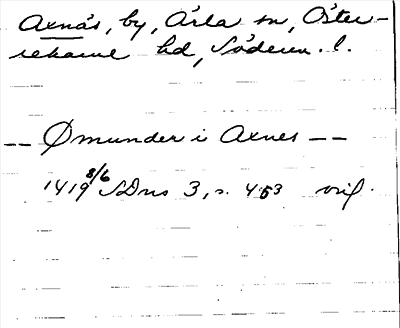 Axnäs, by, Ärla sn, Öster-
rekarne hd, Söderm. l.
-- Ømunder i Axnes --
1419 8/6 SDns 3, s. 453 orig.